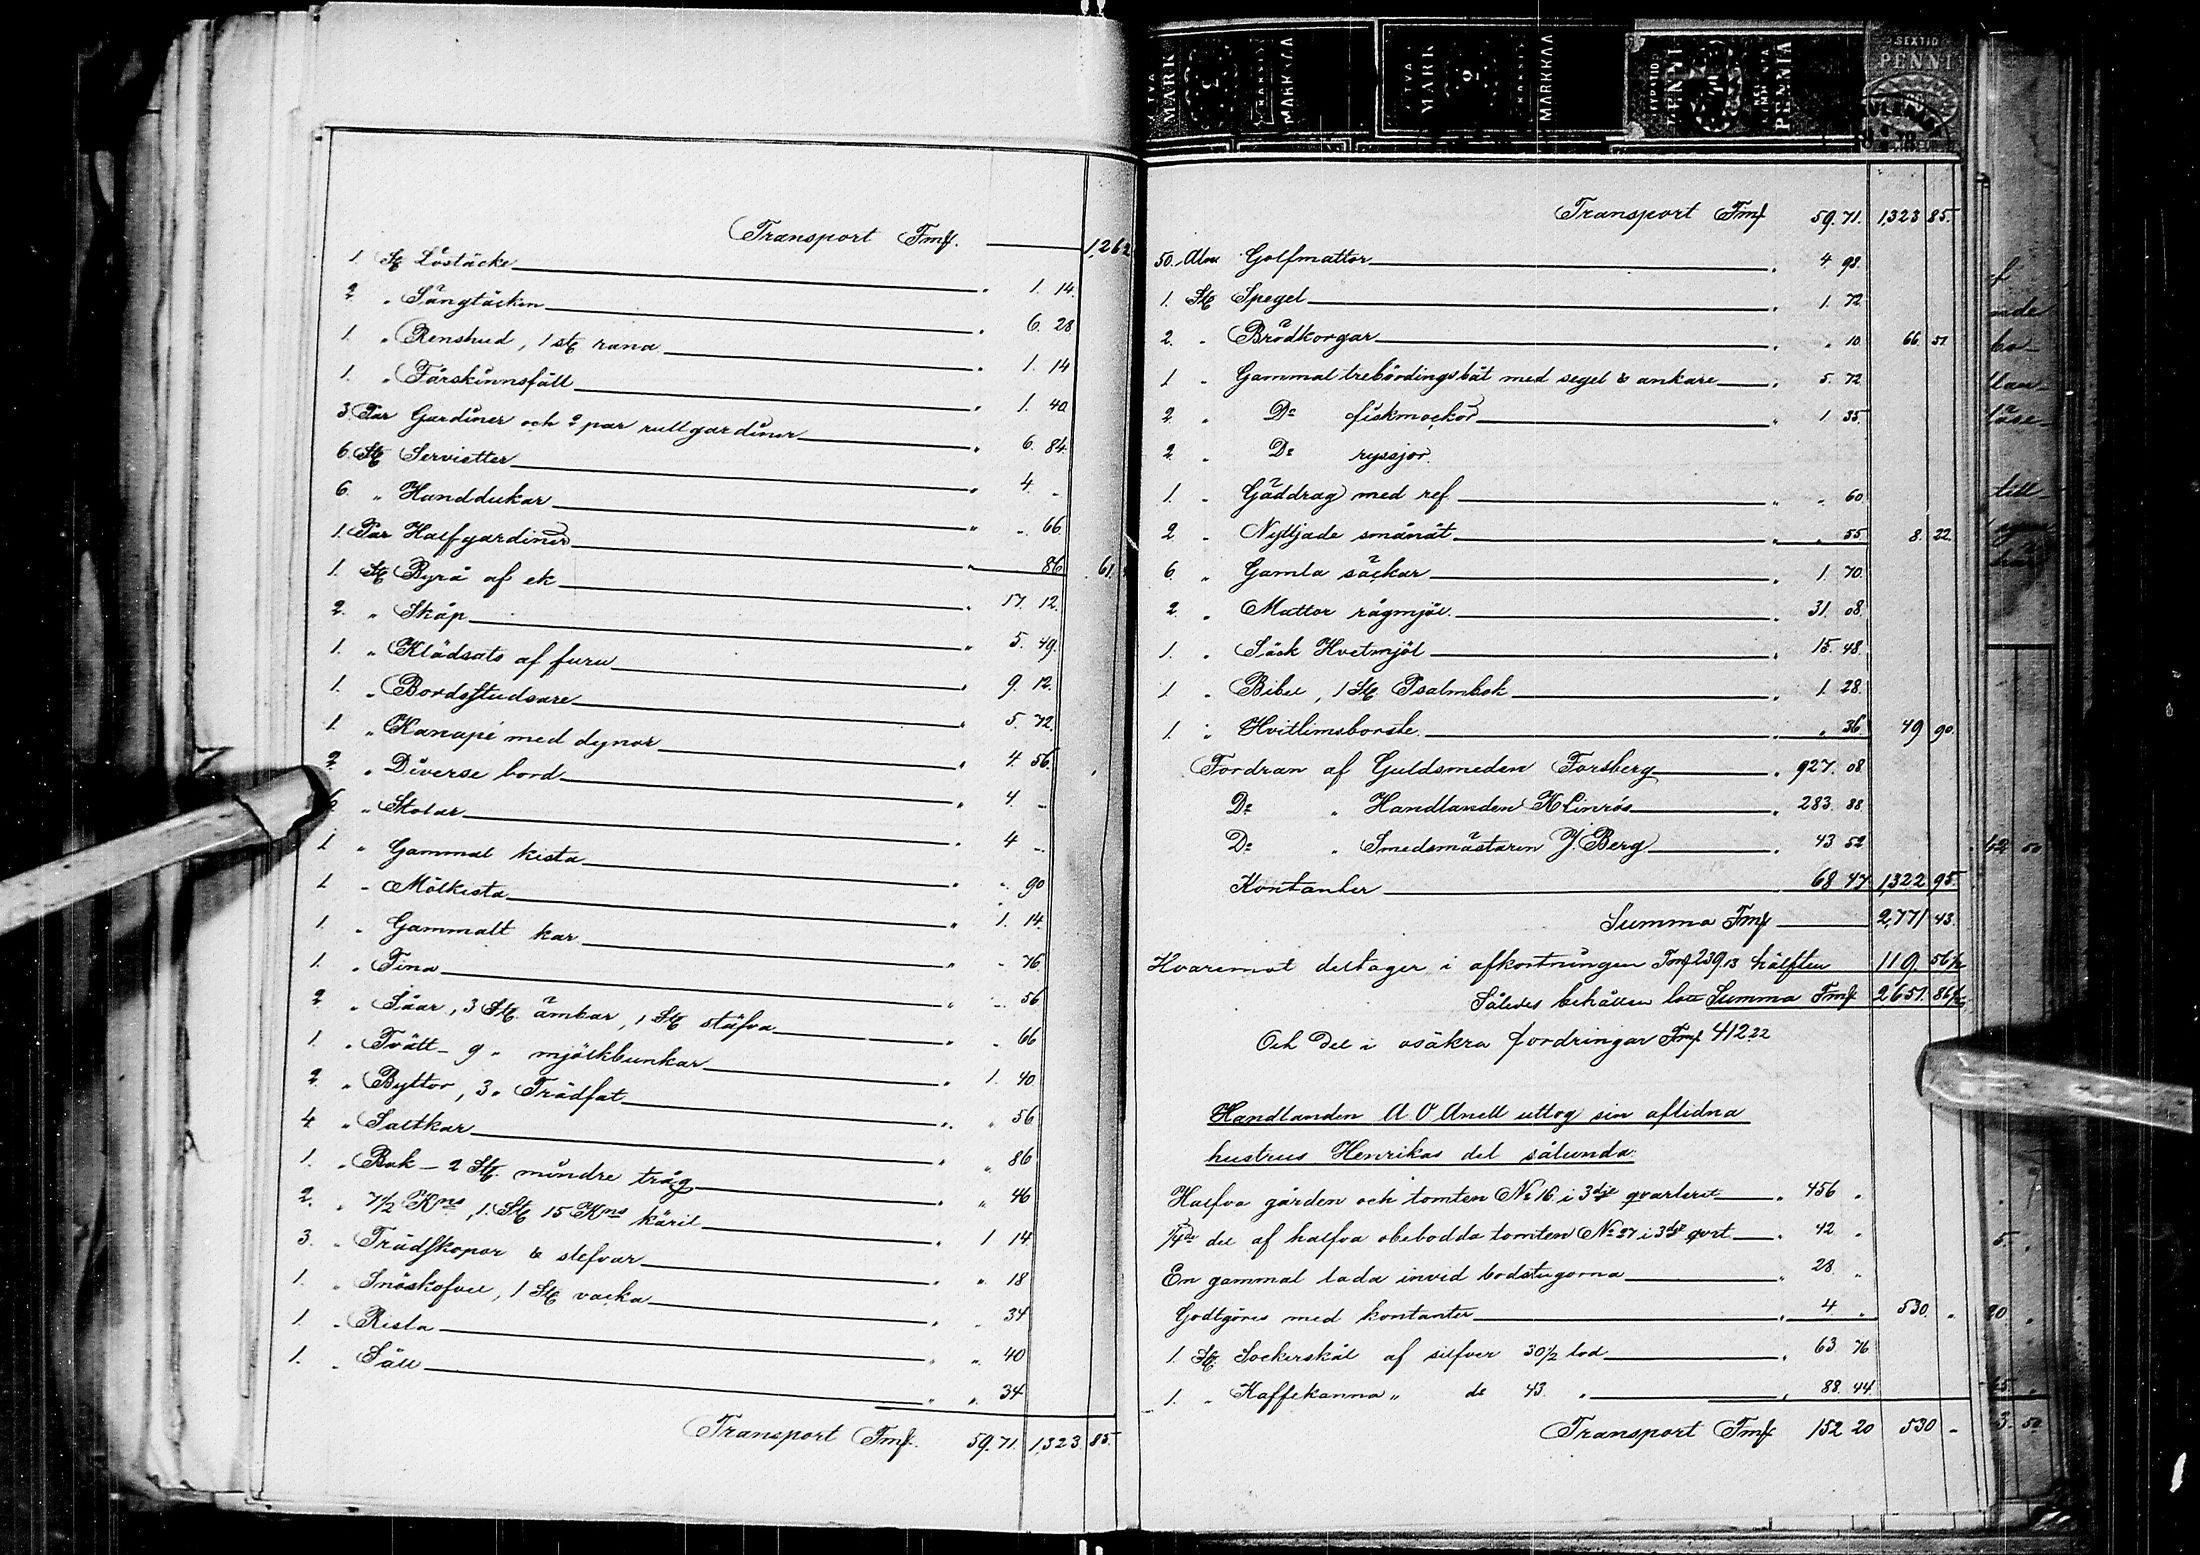 Transport Fmf. 1,262
1. St Löstäcke " 1. 14.
2 " Sängtäcken " 6. 28
1. " Renshud, 1 st rana " 1. 14
1. " Fårskinnsfäll " 1. 40
3. Par Gardiner och 2 par rullgardiner " 6. 84.
6. St Servietter " 4. "
6. " Handdukar " " 66.
1. Par Halfgardiner " 86 61
1. St Byrå af ek " 17. 12.
2. " Skåp " 5. 49.
1. " Klädsats af furu " 9. 12.
1. " Bordsstudsare " 5. 72.
1. " Kanapé med dynor " 4. 56.
2 " Diverse bord " 4 "
" Stolar " 4 "
1 " Gammal kista " " 90
1 " Mölkista " 1. 14.
1. " Gammalt kar " " 76
1. " Tina " " 56
2 " Såar, 3 St. ämbar, 1 St stäfva " " 66
1. " Tvätt- 9 " mjölkbunkar " 1. 40.
2. " Byttor, 3 " Trädfat " " 56
4 " Saltkar " " 86
1. " Bak- 2 St. mindre tråg " " 46
2. " 7 1/2 Kns, 1. St 15 Kns käril " 1 14
3. " Trädskopor & slefvar " " 18
1. " Snöskofvel, 1 St vacka " " 34
1. " Risla " " 40
1. " Såll " " 34
Transport Fmf. 59. 71. 1,323. 85.
SEXTIO
PENNI
MARK
MARKKAA
MARK
MARKKAA
PENNI
PENNIÄ
Transport Fmf 59. 71. 1,323 85.
50. Alnar Golfmattor " 4 98.
1. St Spegel " 1. 72.
2. " Brödkorgar " " 10 66 51
1 " Gammal trebördingsbåt med segel & ankare " 5. 72.
2. " Do fiskmockor " 1 35.
2. " Do ryssjor.
1. " Gäddrag med ref " " 60
2 " Nyttjade smånät " " 55 8. 22.
6. " Gamla säckar " 1. 70.
2. " Mattor rågmjöl. " 31. 08.
1. " Säck Hvetmjöl " 15. 48.
1 " Bibel, 1 St Psalmbok " 1 28.
1. " Hvitlimsborste. " " 36. 49 90.
Fordran af Guldsmeden Forsberg " 927. 08
Do " Handlanden K Linros " 283. 88
Do " Smedsmästaren J. Berg " 43 52
Kontanter 68 47 1,322 95
Summa Fmf 2,771 43.
Hvaremot deltager i afkortningen Fmf 239,13 hälften 119. 56 1/2
Således behållen lott Summa Fmf 2651. 86 1/2
Och Del i osäkra fordringar Fmf 412 22
Handlanden A. O Anell uttog sin aflidna
hustrus Henrikas del sålunda:
Halfva gården och tomten No 16 i 3dje qvarteret " 456 "
1/4de del af halfva obebodda tomten No 27 i 3dje qvrt " 42 "
En gammal lada invid bodstugorna " 28 "
Godtgöres med kontanter " 4 " 530. "
1. St. Sockerskål af silfver 30 1/2 lod " 63. 76
1. " Kaffekanna " do 43. " " 88. 44
Transport Fmf 152 20 530 "